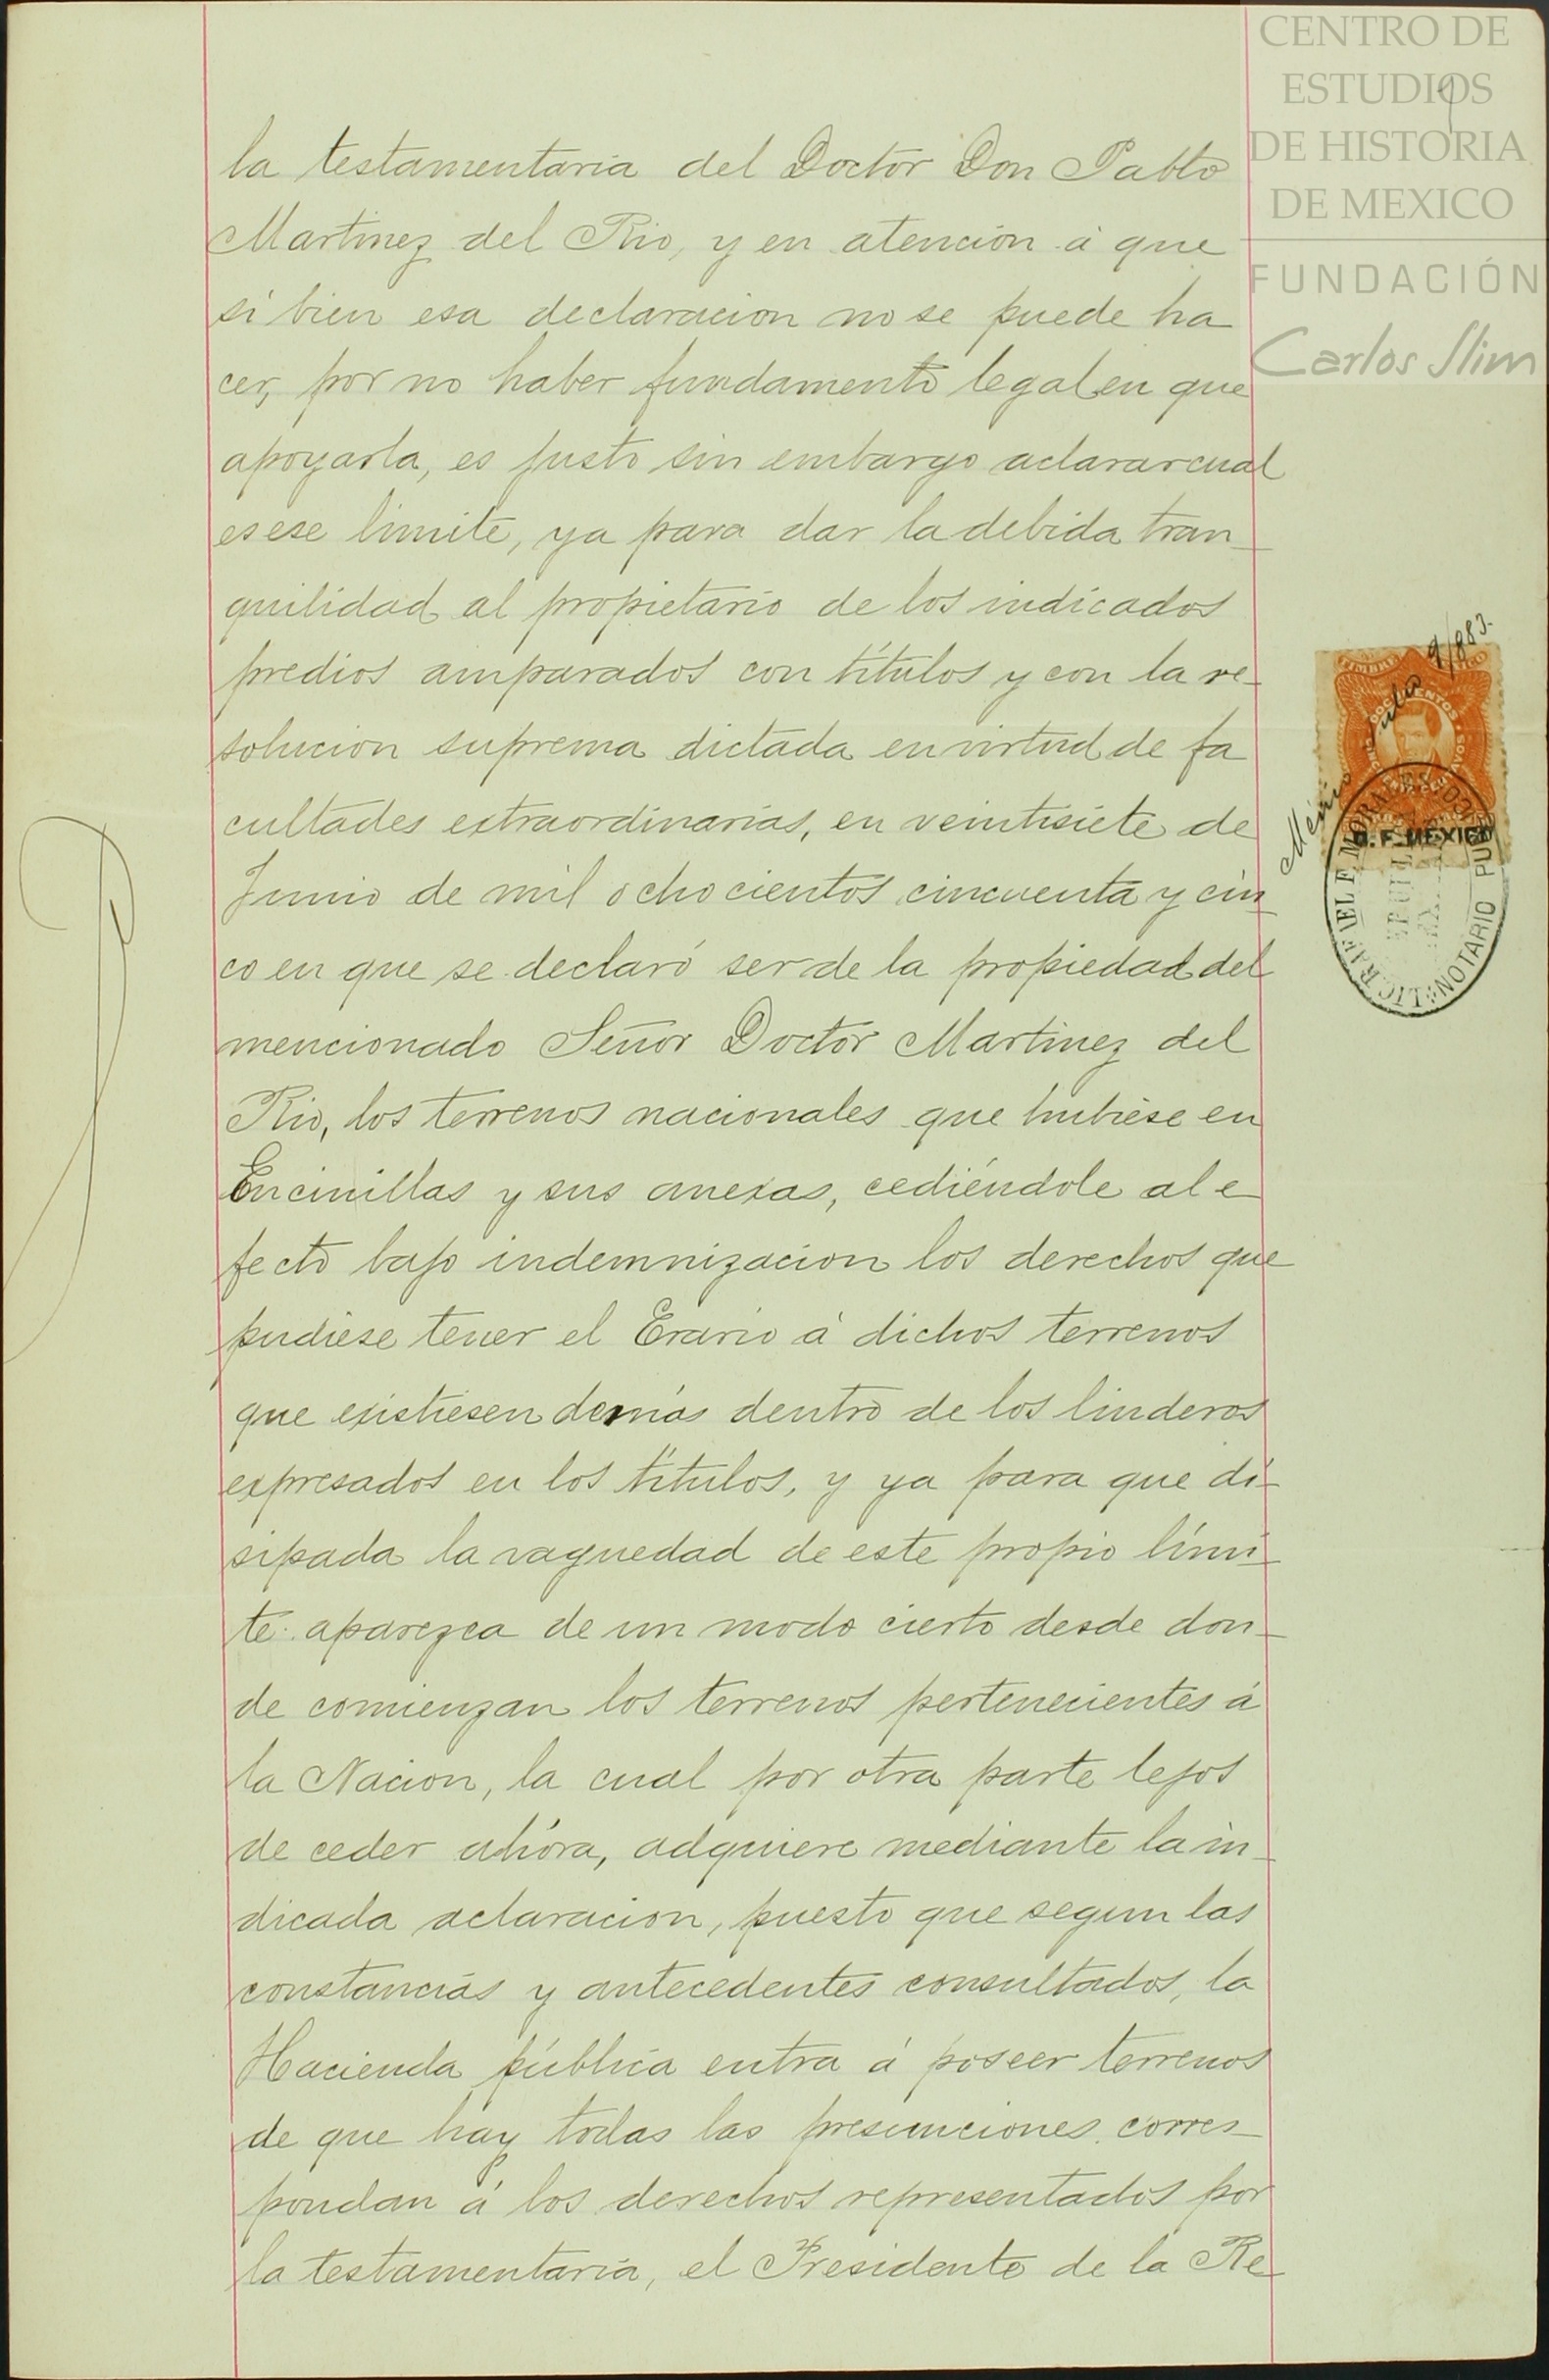 CENTRO DE
ESTUDIOS
DE HISTORIA
DE MEXICO
FUNDACIÓN
Carlos Slim
la testamentaria del Doctor Don Pablo
Martinez del Rio, y en atencion á que
si bien esa declaracion no se puede ha
cer, por no haber fundamento legal en que
apoyarla, es justo sin embargo aclarar cual
es ese limite, ya para dar la debida tran_
quilidad al propietario de los indicados
predios amparados con titulos y con la re_
solucion suprema dictada en virtud de fa
cultades extraordinarias, en veintisiete de
Junio de mil ochocientos cincuenta y cin_
co en que se declaró ser de la propiedad del
mencionado Señor Doctor Martinez del
Rio, los terrenos nacionales que hubiese en
Encinillas y sus anexas, cediéndole al e_
fecto bajo indemnizacion los derechos que
pudiese tener el Erario á dichos terrenos
que existiesen demás dentro de los linderos
expresados en los titulos, y ya para que di_
sipada la vaguedad de este propio lími_
te aparezca de un modo cierto desde don_
de comienzan los terrenos pertenecientes á
la Nacion, la cual por otra parte lejos
de ceder ahora, adquiere mediante la in_
dicada aclaracion, puesto que segun las
constancias y antecedentes consultados, la
Hacienda pública entra á poseer terrenos
de que hay todas las presunciones corres_
pondan á los derechos representados por
la testamentaria, el Presidente de la Re_
México
9/883.
TIMBRE
DOCUMENTOS
D. F. MEXICO
LIC. RAFAEL F. MORALES
NOTARIO